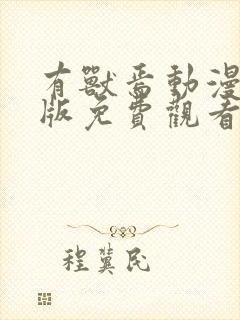 有獸焉動漫
版免費觀看
程冀民